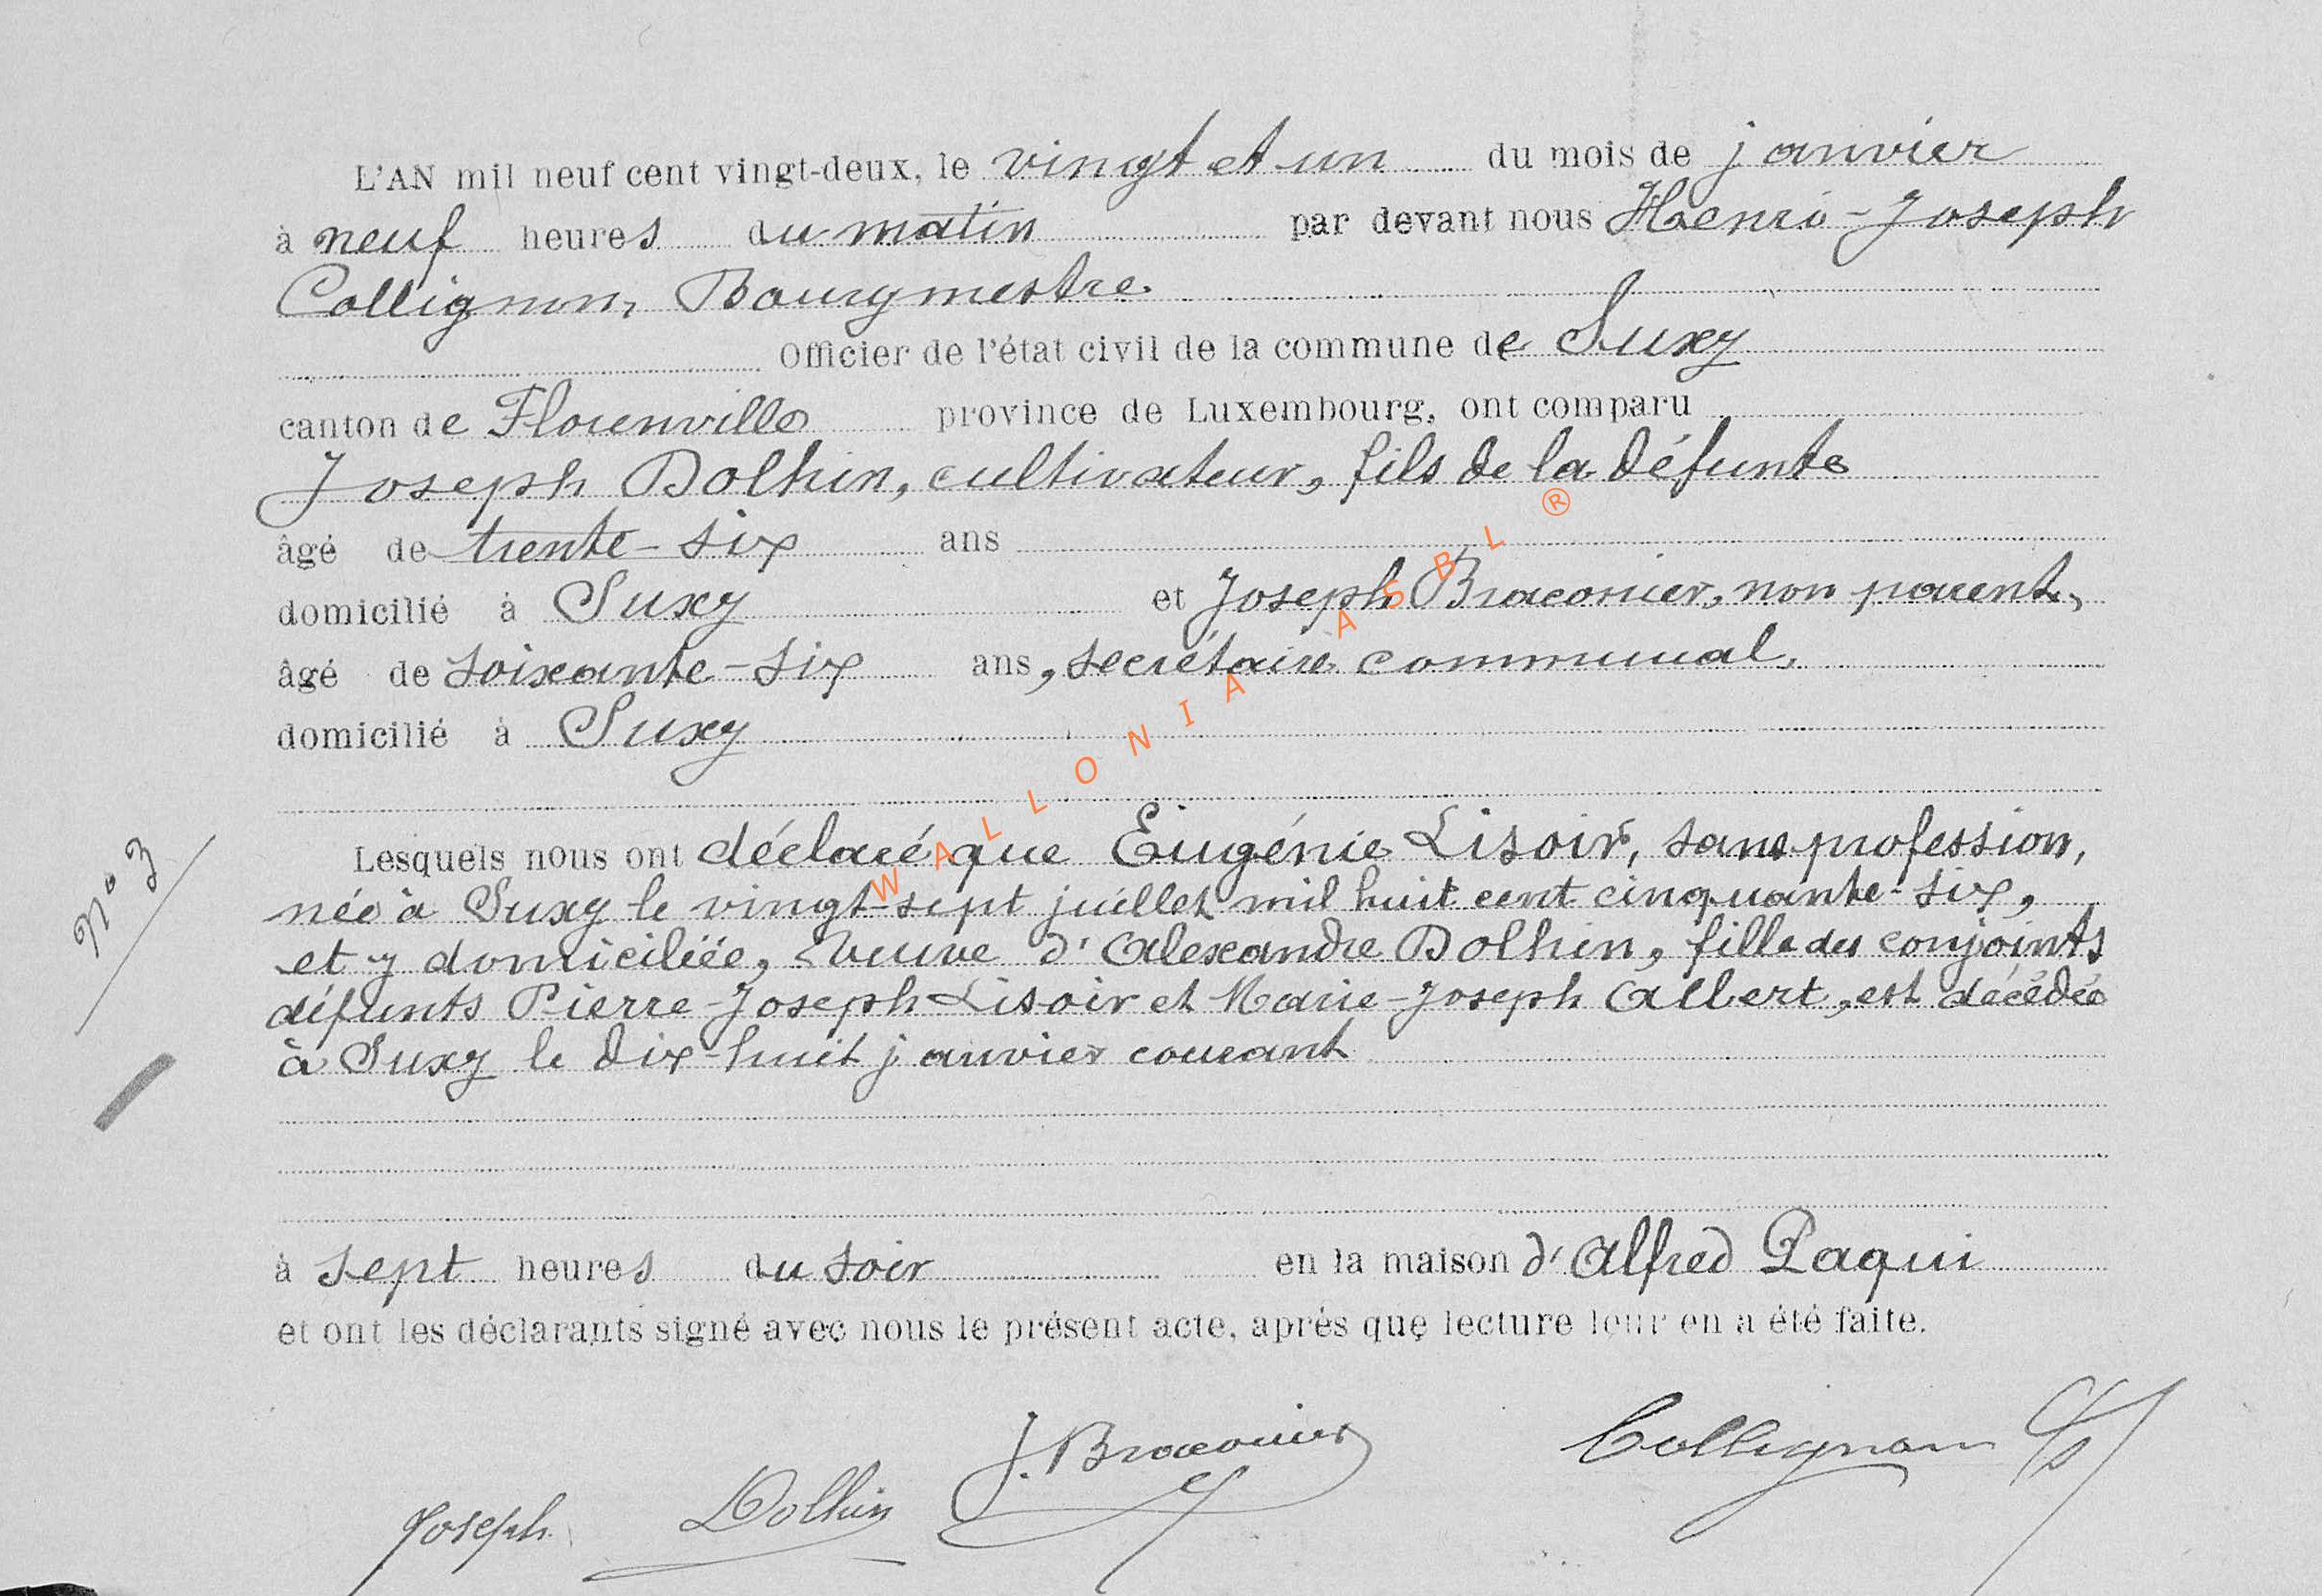 L'AN mil neuf cent vingt-deux, le vingt et un du mois de janvier
à neuf heures du matin par devant nous Henri-Joseph
Collignon, Bourgmestre.
Officier de l'état civil de la commune de Suxy
canton de Florenville province de Luxembourg, ont comparu
Joseph Dolhin, cultivateur, fils de la défunte
âgé de trente-six ans
domicilié à Suxy et Joseph Braconier, non parent,
âgé de soixante-six ans, secrétaire communal,
domicilié à Suxy
Lesquels nous ont déclaré que Eugénie Lisoir, sans profession,
née à Suxy le vingt-sept juillet mil huit cent cinquante-six,
et y domiciliée, veuve d'Alexandre Dolhin, fille des conjoints
défunts Pierre-Joseph Lisoir et Marie-Joseph Albert, est décédée
à Suxy le dix-huit janvier courant
à sept heures du soir en la maison d'Alfred Paqui
et ont les déclarants signé avec nous le présent acte, après que lecture leur en a été faite.
N° 3
Joseph Dolhin J. Braconier Collignon
WALLONIA ASBL ®